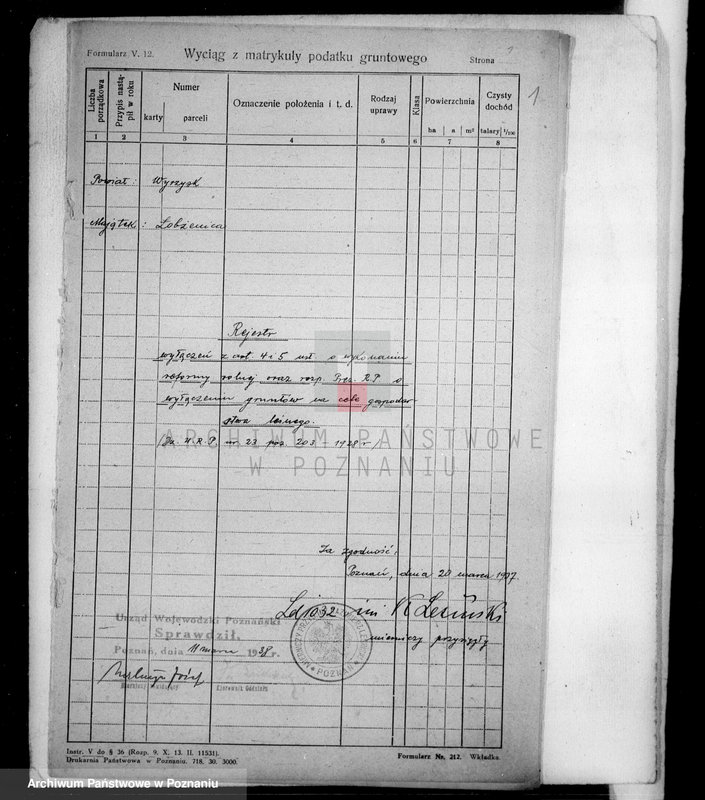 Formularz V. 12.
Wyciąg z matrykuły podatku gruntowego
Strona 1
1
Liczba porządkowa
Przypis nastąpił w roku
Numer
karty
parceli
Oznaczenie położenia i t. d.
Rodzaj uprawy
Klasa
Powierzchnia
ha a m²
Czysty dochód
talary 1/100
1 2 3 4 5 6 7 8
Powiat: Wyrzysk
Majątek: Łobżenica
Rejestr
wyłączeń z art. 4 i 5 ust. o wykonaniu
reformy rolnej oraz rozp. Prez. R.P. o
wyłączeniu gruntów na cele gospodar
stwa leśnego.
/Dz. U.R.P. nr 23 poz. 203 1928 r/
ARCHIWUM PAŃSTWOWE
W POZNANIU
Za zgodność:
Poznań, dnia 20 marca 1937.
Ld 1032 inż. K.
mierniczy przysięgły
Urząd Wojewódzki Poznański
Sprawdził.
Poznań, dnia 11 marca 1938 r.
Józef
Kierownik Oddziału
MIERNICZY PRZYSIĘGŁY
POZNAŃ
Instr. V do § 36 (Rozp. 9. X. 13. II. 11531).
Drukarnia Państwowa w Poznaniu. 718. 30. 3000.
Formularz Nr. 212. Wkładka.
Archiwum Państwowe w Poznaniu